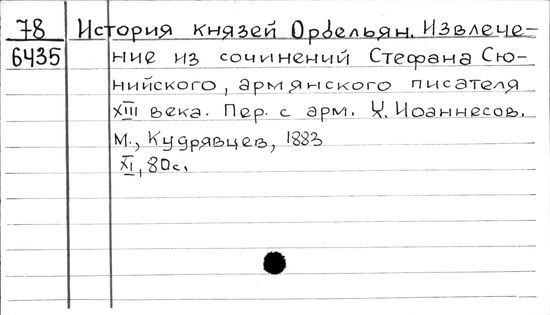 78 История князей Орбельян. Извлече-
6435 ние из сочинений Стефана Сю-
нийского, армянского писателя
XIII века. Пер. с арм. Х. Иоаннесов.
М., Кудрявцев, 1883
XI, 80с.